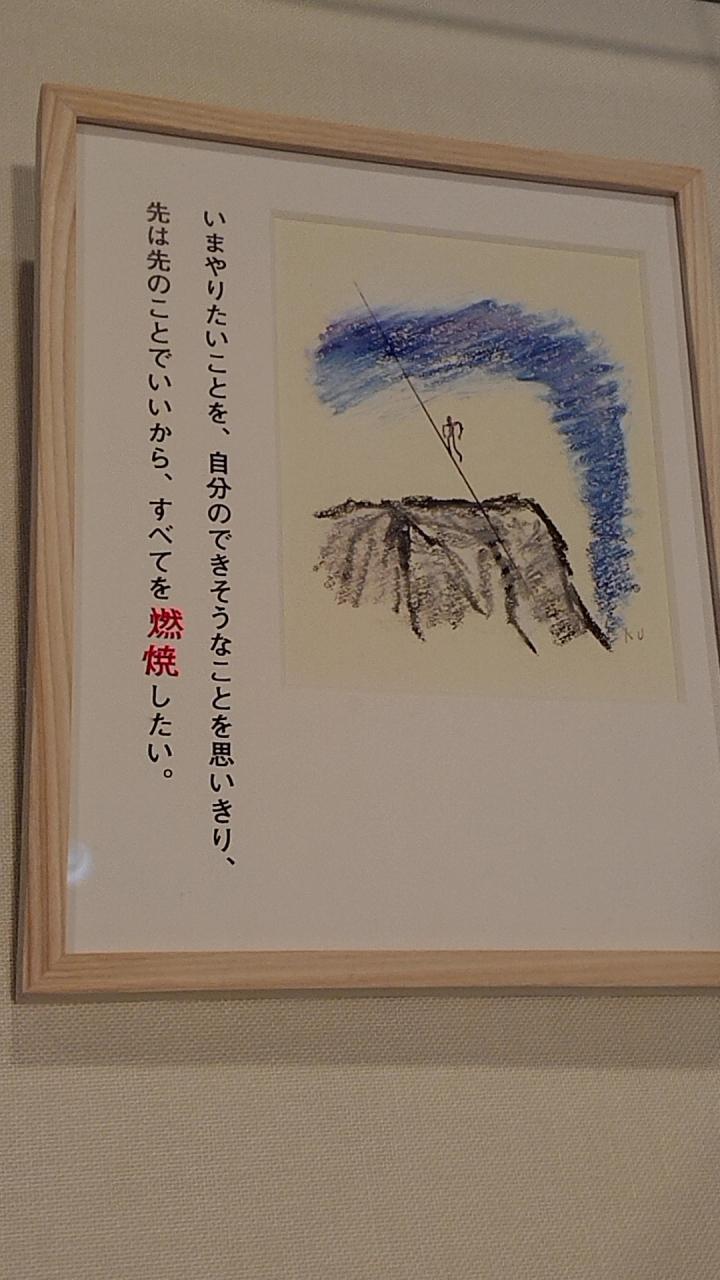 いまやりたいことを、自分のできそうなことを思いきり、
先は先のことでいいから、すべてを燃焼したい。
KU